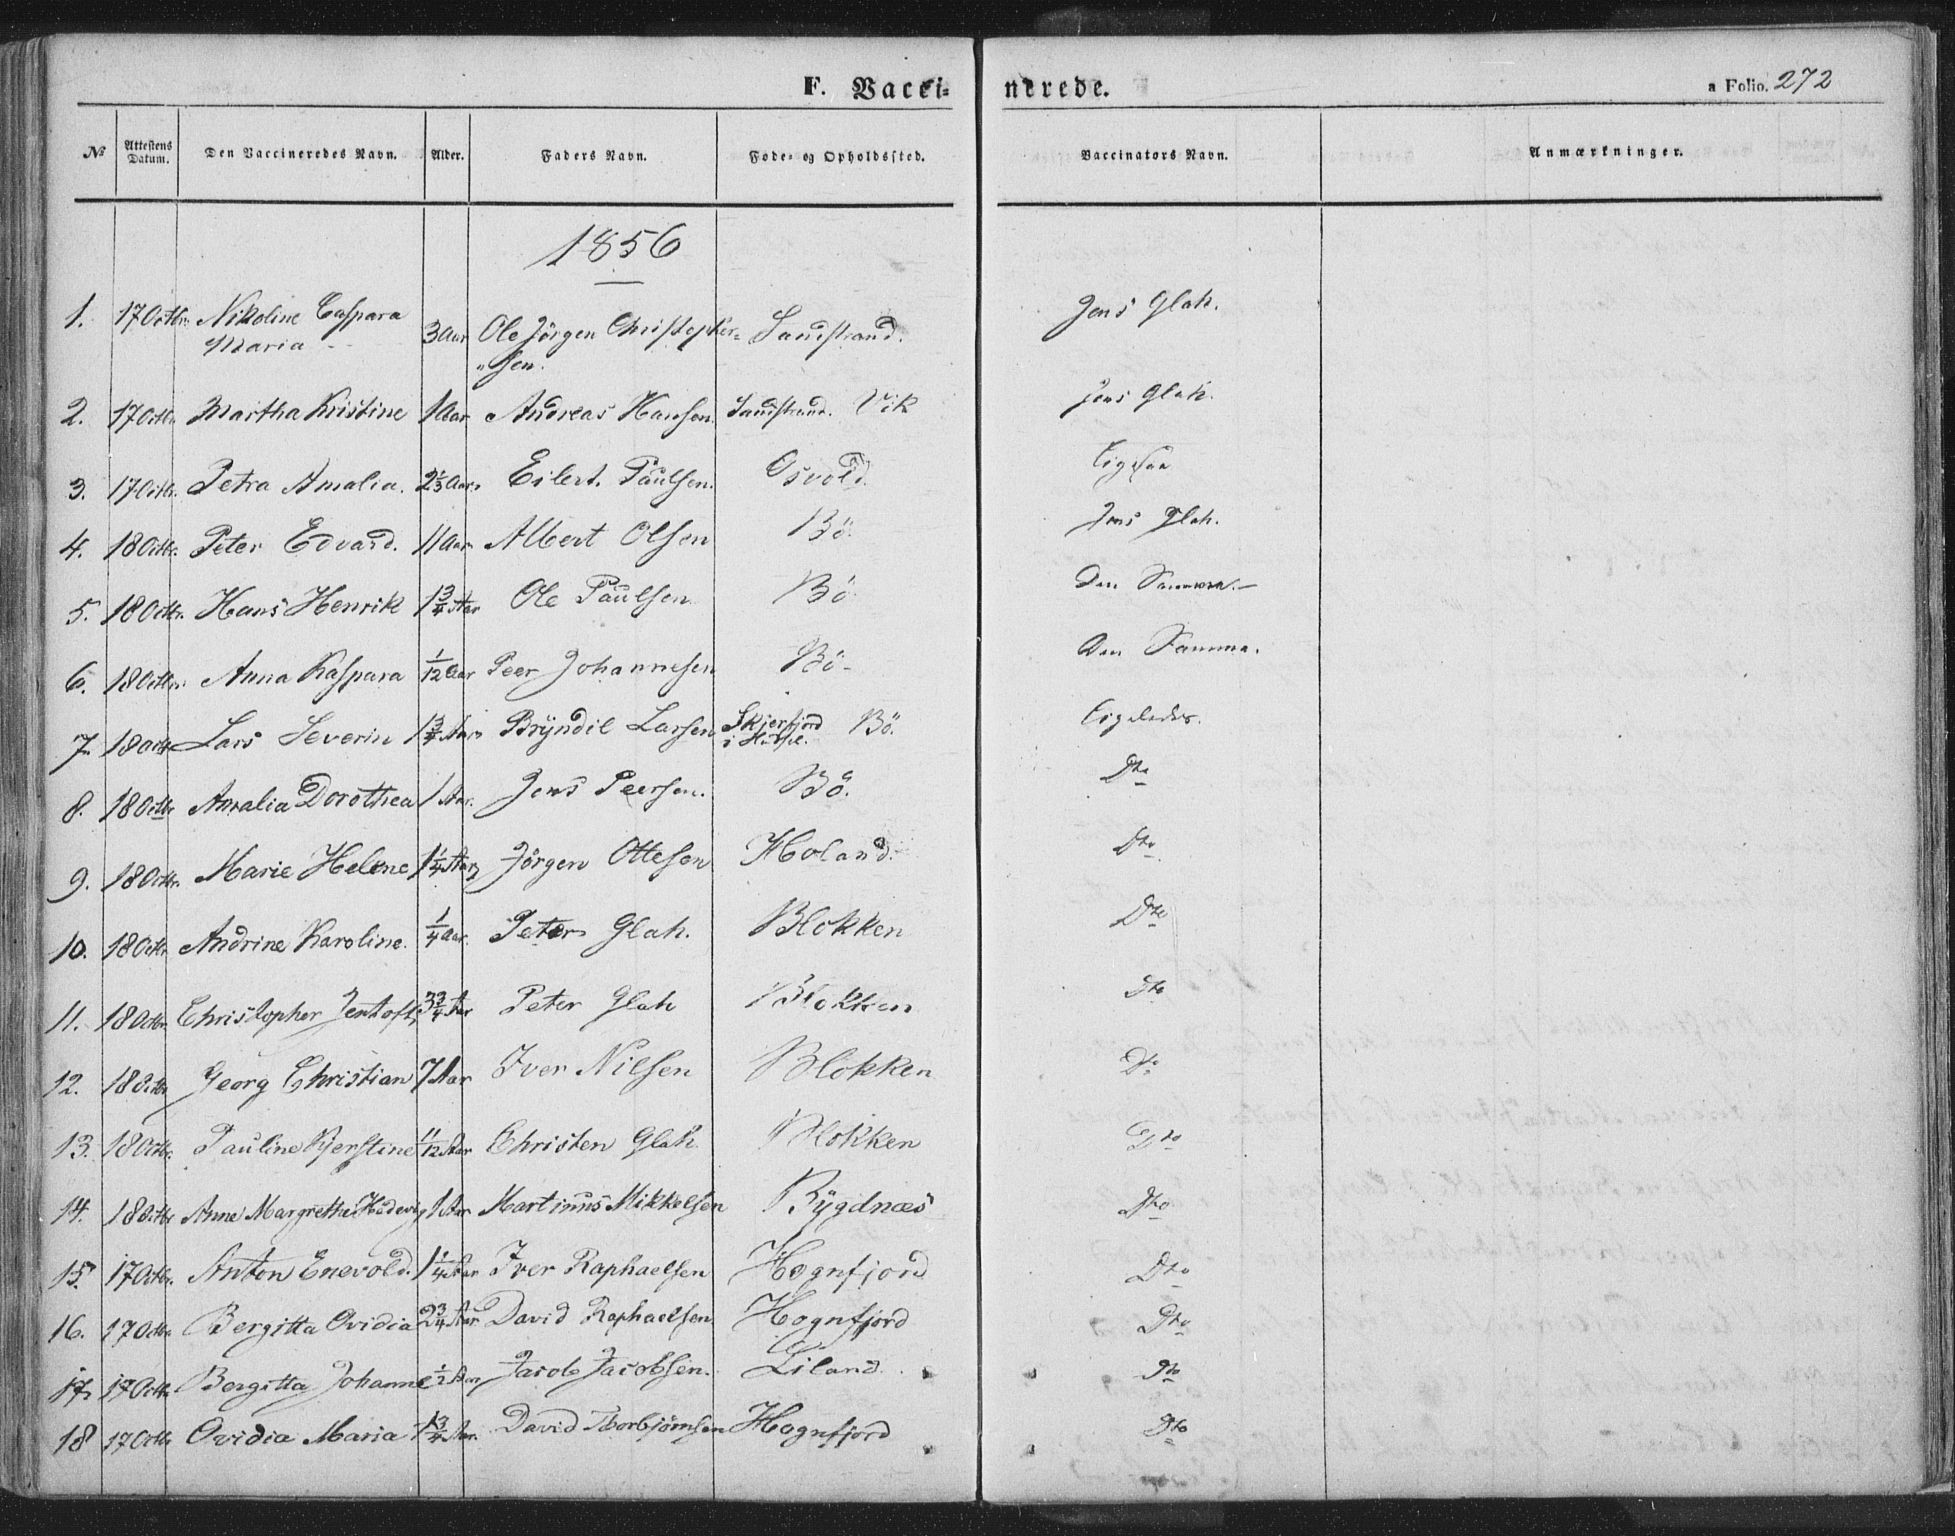 F. Vaccinerede.
a Folio. 272
№ Attestens Datum. Den Vaccineredes Navn. Alder. Faders Navn. Føde- og Opholdssted. Vaccinators Navn. Anmærkninger.
1856
1. 17 Octbr. Nikoline Caspara Maria 3 Aar Ole Jörgen Christopher=sen. Sandstrand. Jens Glah.
2. 17 Octbr. Martha Kristine 1 Aar Andreas Hansen. Sandstrand. Vik Jens Glah.
3. 17 Octbr. Petra Amalia. 2 1/3 Aar. Eilert. Paulsen. Osvold. Ligesaa
4. 18 Octbr. Peter Edvard. 11 Aar Albert Olsen Bö. Jens Glah.
5. 18 Octbr. Hans Henrik 1 3/4 Aar Ole Paulsen Bö Den Samme.
6. 18 Octbr. Anna Kaspara 1/12 Aar Peer Johannesen Bö Den Samme.
7. 18 Octbr Lars Severin 1 3/4 Aar Bryndil Larsen Skjerfjord i Bö. Ligeledes.
8. 18 Octbr Amalia Dorothea 1 Aar. Jens Peersen. Bö. Dto
9. 18 Octbr. Marie Helene 1 1/4 Aar Jörgen Ottesen Holand. Dto
10. 18 Octbr Andrine Karoline. 1/4 Aar. Peter Glah. Blokken Dto
11. 18 Octbr. Christopher Jentoft 3 3/4 Aar Peter Glah Blokken Dto
12. 18 Octbr Georg Christian 7 Aar Iver Nilsen Blokken Do
13. 18 Octbr. Pauline Kjerstine 11/12 Aar Christen Glah Blokken Dto
14. 18 Octbr Anne Margrethe Hedevig 1 Aar Martinus Mikkelsen Bygdnæs Dto
15. 17 Octbr. Anton Enevold. 1 1/4 Aar Iver Raphaelsen Hognfjord Dto
16. 17 Octbr Bergitta Ovidia 2 3/4 Aar David Raphaelsen Hognfjord Dto
17. 17 Octbr Bergitta Johanne 1/2 Aar Jacob Jacobsen. Liland. Dto
18 17 Octbr Ovidia Maria 1 3/4 Aar. David Thorbjörnsen Hognfjord Dto